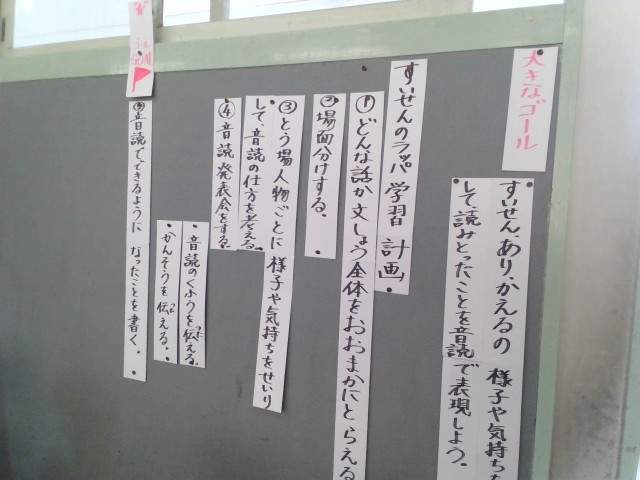 大きなゴール
すいせん、あり、かえるの様子や気持ち
して読みとったことを音読で表現しよう。
すいせんのラッパ学習計画
① どんな話か文しょう全体をおおまかにとらえる
② 場面分けする。
③ とう場人物ごとに様子や気持ちをせいり
して、音読の仕方を考える。
④ 音読発表会をする。
・音読のくふうを伝える。
・かんそうを伝える。
⑤ 音読でできるようになったことを書く。